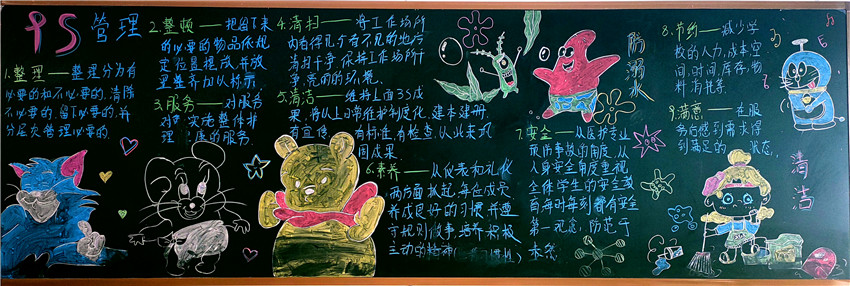 9S管理
1.整理——整理分为有
必要的和不必要的,清除
不必要的,留下必要的,并
分层次管理必要的.
2.整顿——把留下来
的必要的物品依规
定位置摆放,并放
置整齐加以标示.
3.服务——对服务
对 实施整体护
理 质的服务.
4.清扫——将工作场所
内看得见与看不见的地方
清扫干净,保持工作场所干
净,亮的环境.
5.清洁——维持上面3S成
果,将以上日常维护制度化,建本建册,
有宣传 有标准,有检查,从业表现
固成果
6.素养——从仪表和礼仪
两方面抓起,每位成员
养成良好的习惯,并遵
守规则做事,培养积极
主动的精神
防溺水
7.安全——从医护专业
预防事故的角度,从
人身安全角度重视
全体学生的安全教
育,每时每刻都有安全
第一观念,防范于
未然.
8.节约——减少学
校的人力,成本,空
间,时间,库存,物
料消耗等.
9.满意——在服
务后感到需求得
到满足的 状态.
清洁